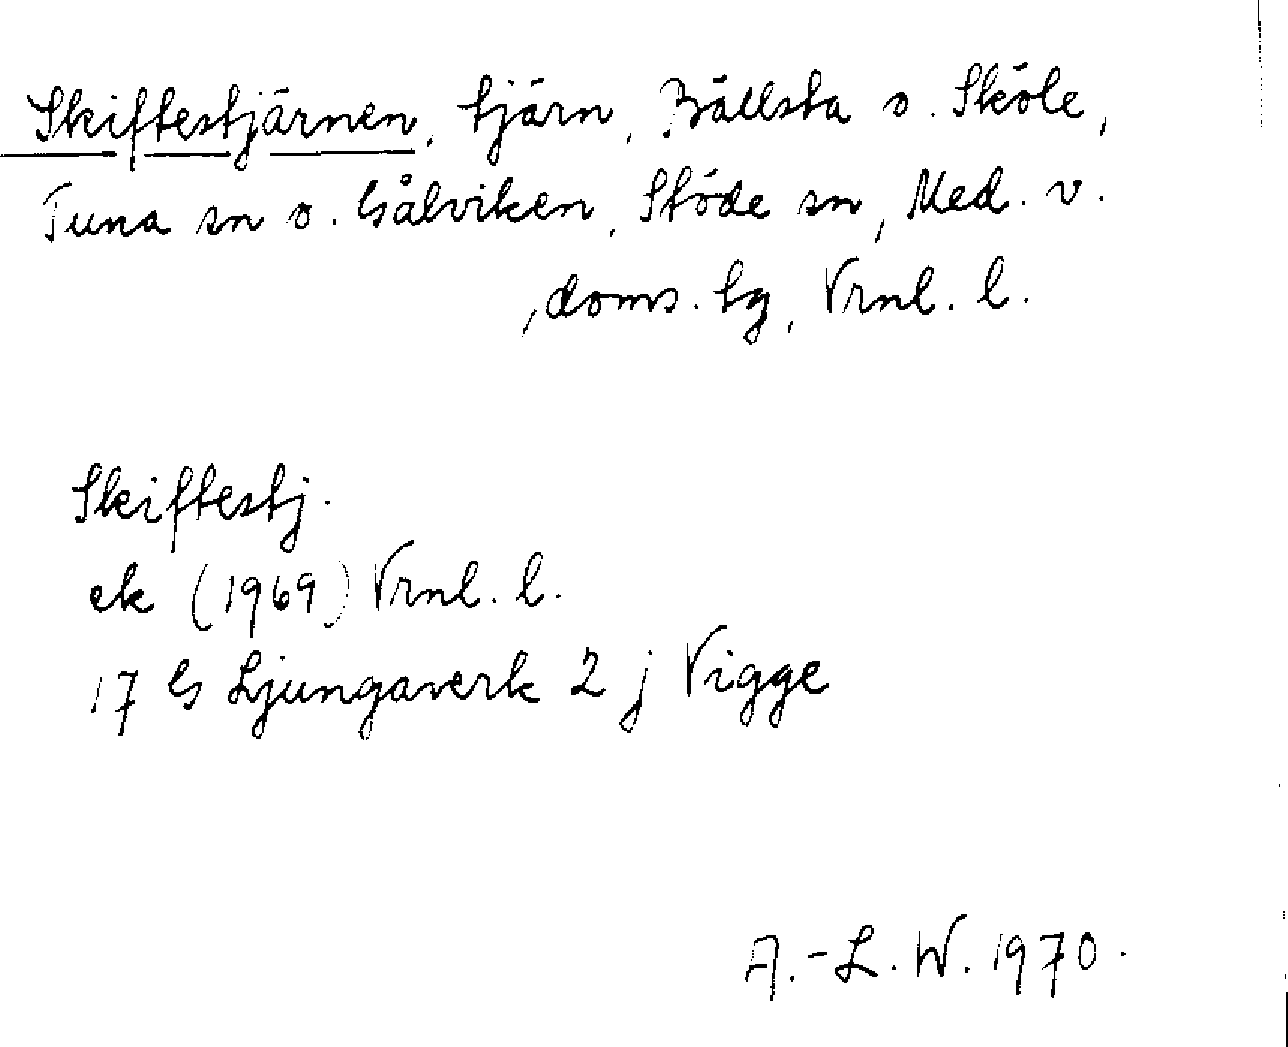 Skiftestjärnen, tjärn, Bällsta o. Sköle,
Tuna sn o. Gålviken, Stöde sn, Med. v.
doms. tg, Vrnl. l.
Skiftestj.
ek (1969) Vrnl. l.
17 G Ljungaverk 2 j Vigge
A.-L. W. 1970.